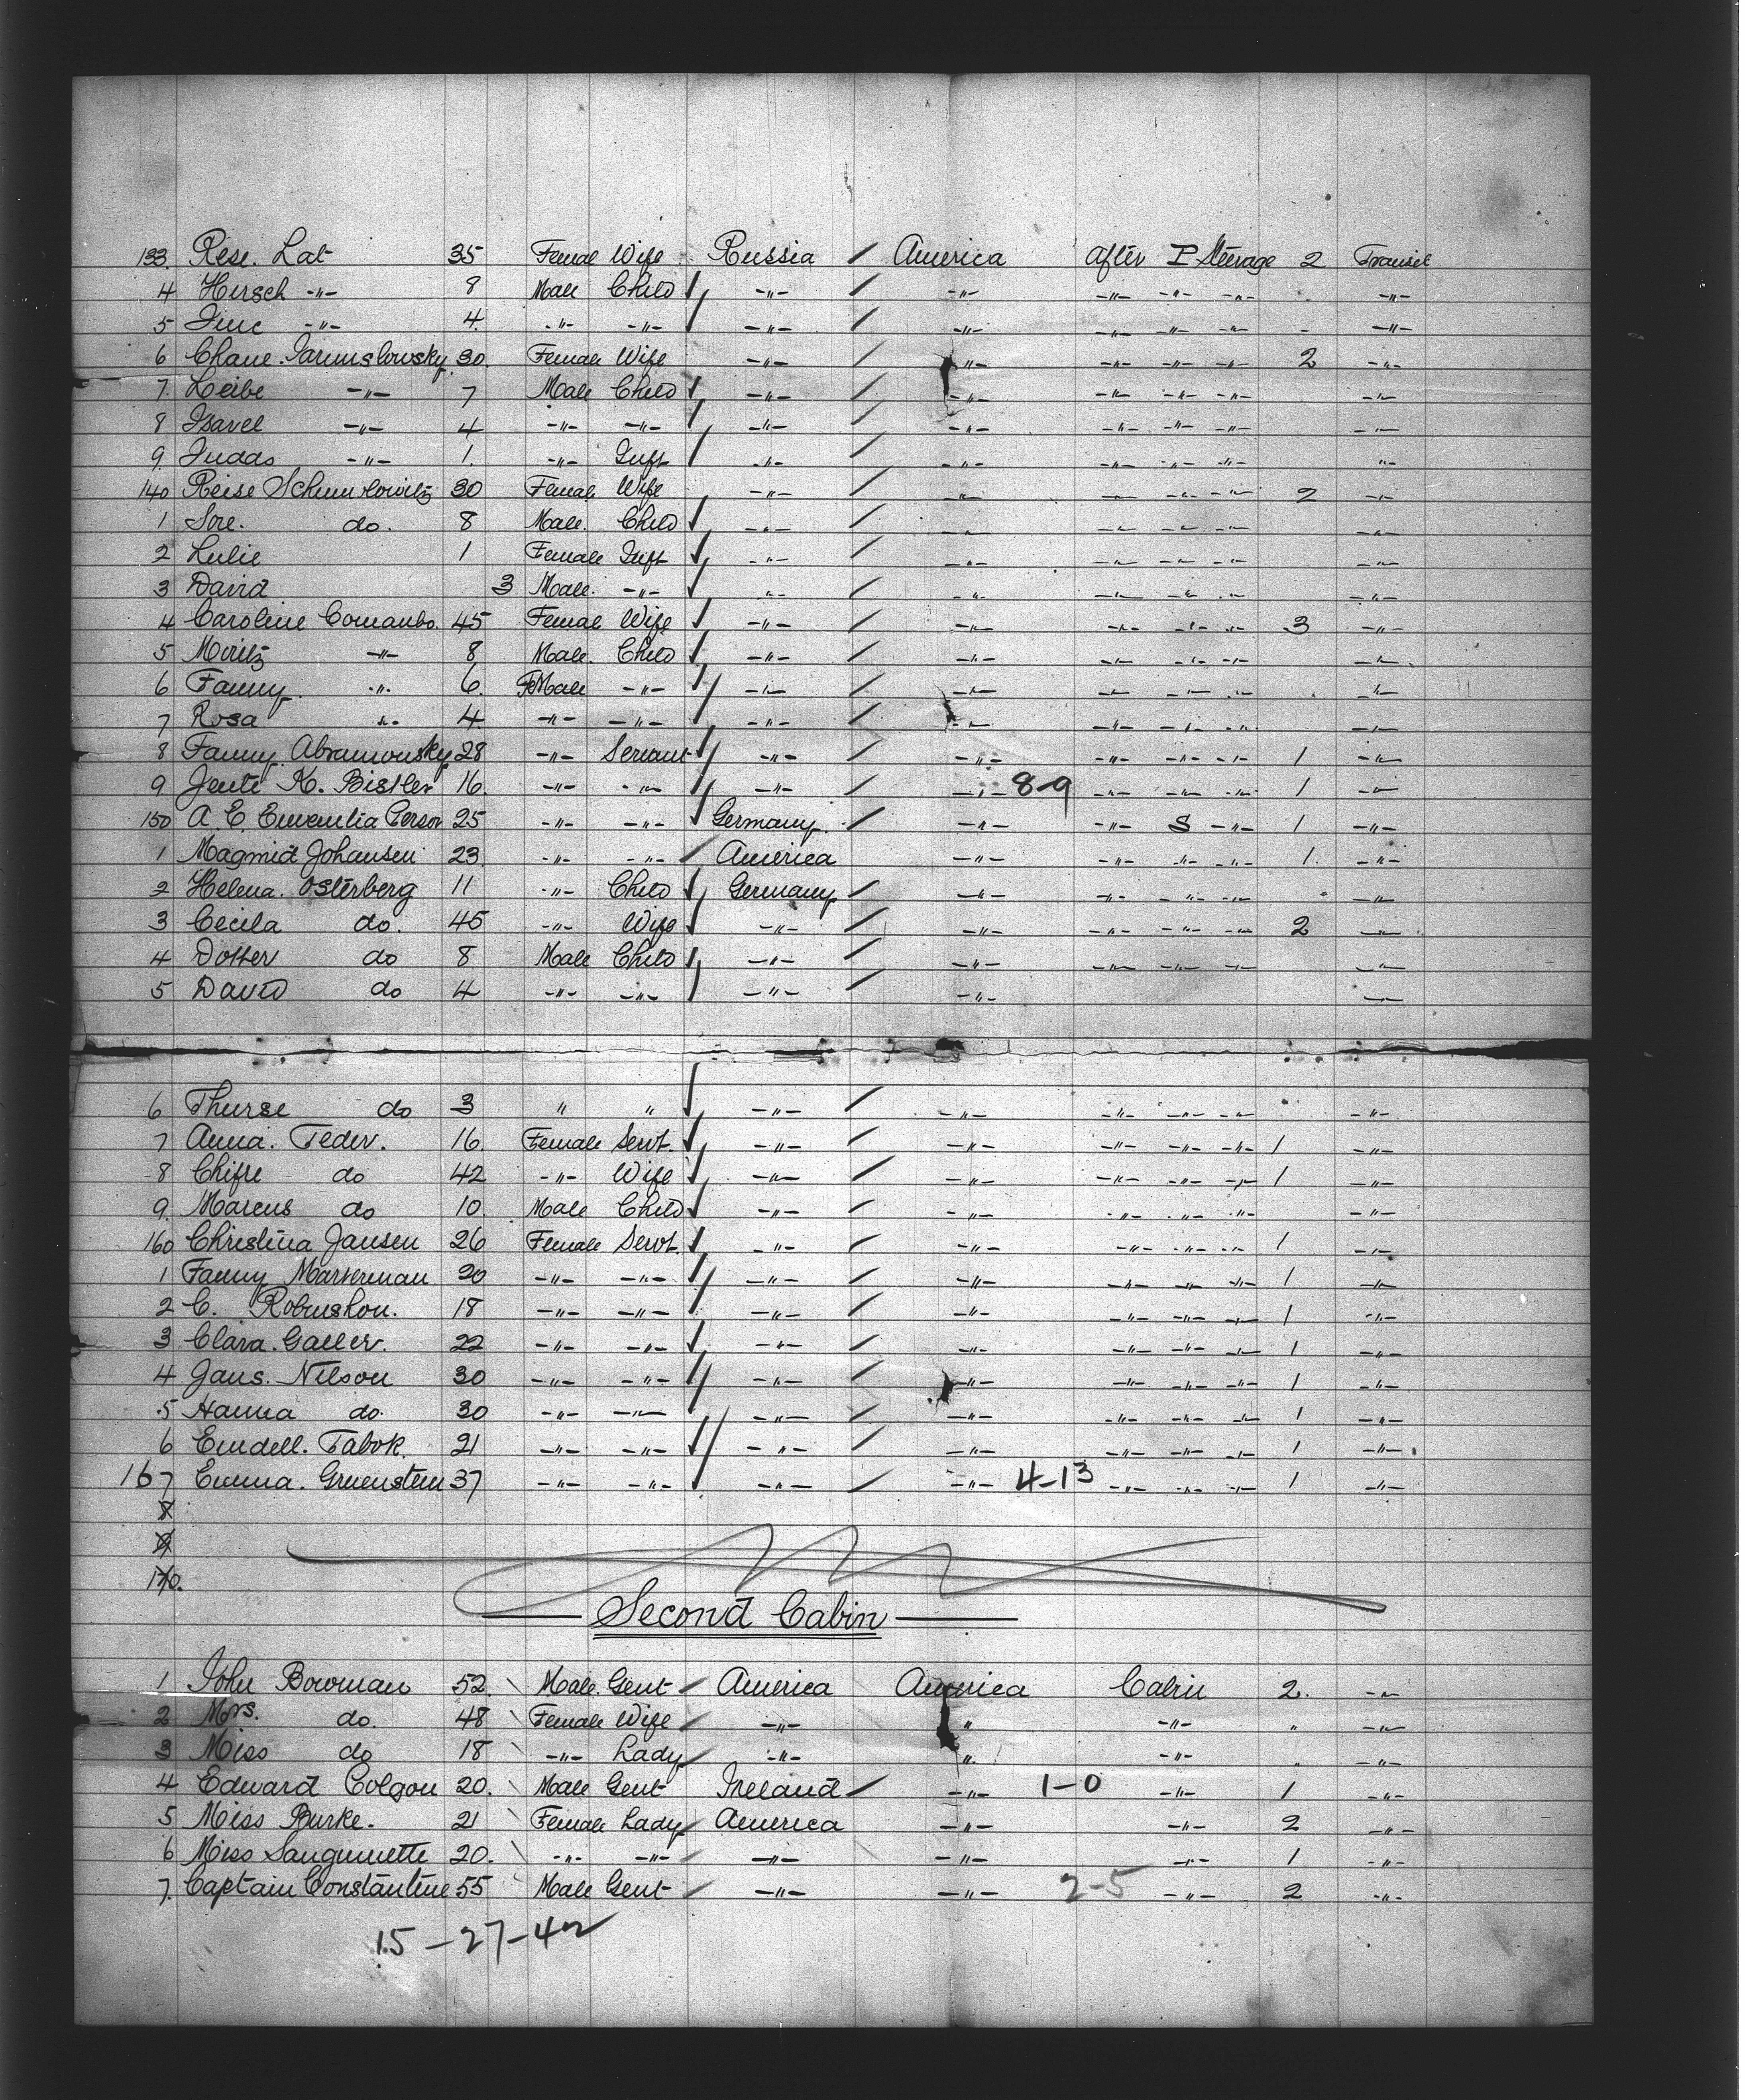 133. Rese. Lat 35 Femal Wife Russia / America After P Steerage 2 Transit
4 Hersch -"- 8 Male Child -"- / -"- -"- -"- -"- -"-
5 -"- 4. -"- -"- -"- / -"- -"- -"- -"- - -"-
6 Chane. Jarumslowsky 30. Female Wife -"- / -"- -"- -"- -"- 2 -"-
7. Leibe -"- 7 Male Child -"- / -"- -"- -"- -"- -"-
8 Isavel -"- 4 -"- -"- -"- / -"- -"- -"- -"- -"-
9. Judas -"- 1. -"- Inft -"- / -"- -"- -"- -"- "
140 Reise Schumlowitz 30 Female Wife -"- / -"- -"- -"- -"- 2 -"-
1 Sore. do. 8 Male. Child -"- / -"- -"- -"- -"- -"-
2 Lulie 1 Female Inft -"- / -"- -"- -"- -"- -"-
3 David 3 Male. -"- -"- / -"- -"- -"- -"- -"-
4 Caroline Comanbo. 45 Femal Wife -"- / -"- -"- -"- -"- 3 -"-
5 Moritz -"- 8 Male. Child -"- / -"- -"- -"- -"- -"-
6 Fanny. -"- 6. FeMale -"- -"- / -"- -"- -"- -"- -"-
7 Rosa -"- 4 -"- -"- -"- / -"- -"- -"- -"- -"-
8 Fanny. Abramowsky 28 -"- Servant -"- / -"- -"- -"- -"- 1 -"-
9 Jente K. Bistler 16. -"- -"- -"- / -"- 8-9 -"- -"- -"- 1 -"-
150 A. E. Person 25 -"- -"- Germany. / -"- -"- S -"- 1 -"-
1 Magmid Johansen 23. -"- -"- America -"- -"- -"- -"- 1. -"-
2 Helena. Osterberg 11 -"- Child Germany / -"- -"- -"- -"- -"-
3 Cecila do. 45 -"- Wife -"- / -"- -"- -"- -"- 2 -"-
4 Dotter do 8 Male Child -"- / -"- -"- -"- -"- -"-
5 David do 4 -"- -"- -"- / -"- -"-
6 Thurse do 3 " " -"- / -"- -"- -"- -"- -"-
7 Anna. Feder. 16. Female Servt. -"- / -"- -"- -"- -"- 1 -"-
8 Chifre do 42 -"- Wife -"- / -"- -"- -"- -"- 1 -"-
9. Marcus do 10. Male Child -"- / -"- -"- -"- -"- -"-
160 Christina Jansen 26 Female Servt. -"- / -"- -"- -"- -"- 1 -"-
1 Fanny Marverman 20 -"- -"- -"- / -"- -"- -"- -"- 1 -"-
2 C. Robinshon. 18 -"- -"- -"- / -"- -"- -"- -"- 1 -"-
3 Clara. Galler. 22 -"- -"- -"- / -"- -"- -"- -"- 1 -"-
4 Jans. Nilson 30 -"- -"- -"- / -"- -"- -"- -"- 1 -"-
5 Hanna do. 30 -"- -"- -"- / -"- -"- -"- -"- 1 -"-
6 Emdell. Tabok. 21 -"- -"- -"- / -"- -"- -"- -"- 1 -"-
167 Emma. Gruenstein 37 -"- -"- -"- / -"- 4-13 -"- -"- -"- 1 -"-
8
9
170.
Second Cabin
1 John Bowman 52. Male. Gent America America Cabin 2. -"-
2 Mrs. do. 48 Female Wife -"- " -"- " -"-
3 Miss do 18 -"- Lady -"- " -"- " -"-
4 Edward Colgon 20. Male Gent Ireland / -"- 1-0 -"- 1 -"-
5 Miss Burke. 21 Female Lady America -"- -"- 2 -"-
6 Miss Sanguinette 20. -"- -"- -"- -"- -"- 1 -"-
7. Captain Constantine 55 Male Gent -"- -"- 2-5 -"- 2 -"-
15-27-42